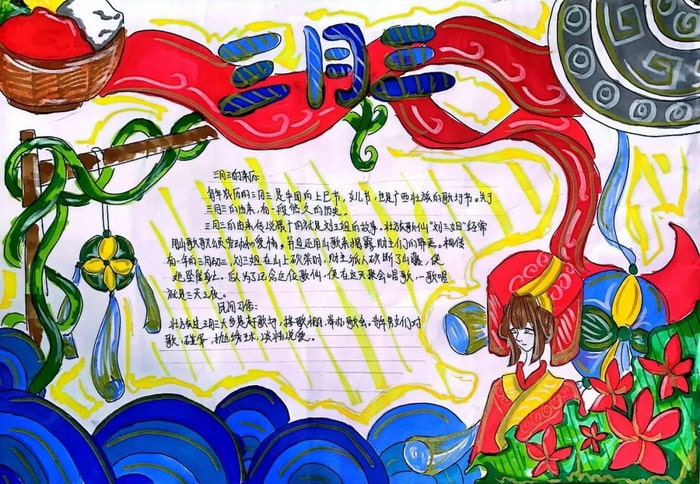 三月三
三月三的来历:
每年农历的三月三是中国的上巳节,女儿节,也是广西壮族的歌圩节。关于
三月三的由来,有一段悠久的历史。
三月三的由来传说最广的就是刘三姐的故事。壮族歌仙“刘三姐”经常
用山歌歌颂劳动和爱情。并且还用山歌来揭露财主们的罪恶。相传
有一年的三月初三,刘三姐在山上砍柴时,财主派人砍断了山藤,使
她坠崖身亡。后人为了纪念这位歌仙,便在这天聚会唱歌,一歌唱
就是三天三夜。
民间习俗:
壮族过三月三大多是赶歌圩,搭歌棚,举办歌会,青年男女们对
歌、碰蛋、抛绣球,谈情说爱。